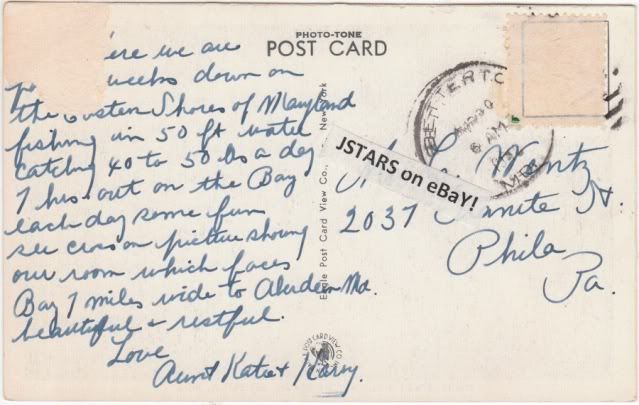 PHOTO-TONE
POST CARD
ere we are
weeks down on
the Eastern Shores of Maryland
fishing in 50 ft water
catching 40 to 50 lbs a day
7 hrs out on the Bay
each day some fun
see cross on picture showing
our room which faces
Bay 7 miles wide to Aberdeen Md.
beautiful + restful.
Love
Aunt Katie + Harry.
Eagle Post Card View Co., New York
BETTERTO
AUG 30
6 AM
MD.
JSTARS on eBaY!
Wentz
2037 St.
Phila
Pa.